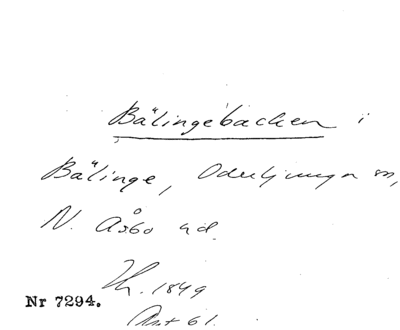 Bälingebacken i
Bälinge, Oderljunga sn,
N. Åsbo hd.
Th. 1849
Nr 7294.
Ant 61.